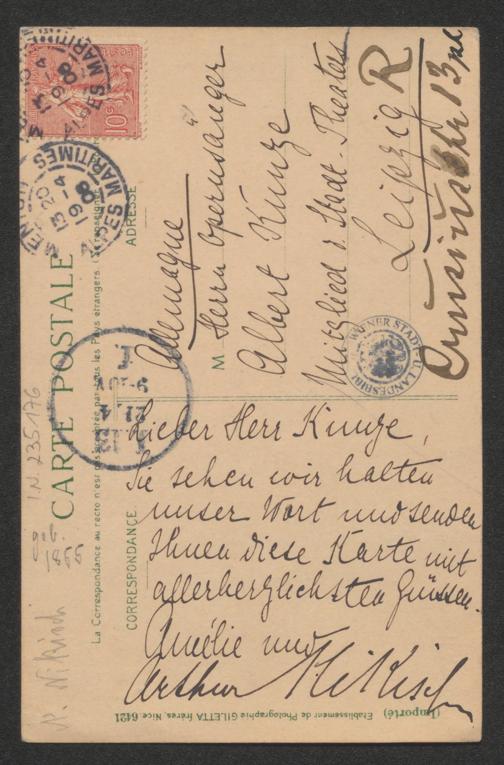 CARTE POSTALE
La Correspondance au recto n'est pas acceptée par tous les Pays étrangers
CORRESPONDANCE
ADRESSE
10
MENTON
13 20
19 - 4
08
ALPES MARITIMES
Allemagne
M Herrn Opernsänger
Albert Kunze
Mitglied d. Stadt-Theaters
Leipzig R
13 pt
WIENER STADT- U. LANDESBIBL
Lieber Herr Kunze,
Sie sehen wir halten
unser Wort und senden
Ihnen diese Karte mit
allerherzlichsten Grüssen.
Amélie und
Arthur Nikisch
I.N. 235176
geb.
1855
Nikisch
(Importé) Etablissement de Photographie GILETTA frères, Nice 6421